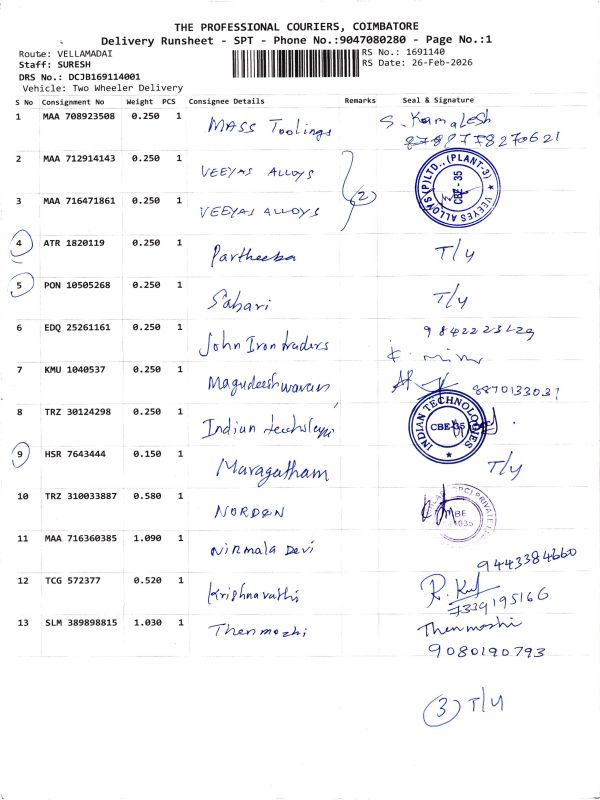 THE PROFESSIONAL COURIERS, COIMBATORE
Delivery Runsheet - SPT - Phone No.:9047080280 - Page No.:1
Route: VELLAMADAI RS No.: 1691140
Staff: SURESH RS Date: 26-Feb-2026
DRS No.: DCJB169114001
Vehicle: Two Wheeler Delivery
S No Consignment No Weight PCS Consignee Details Remarks Seal & Signature
1 MAA 708923508 0.250 1 MASS Toolings S. Kamalesh
2 MAA 712914143 0.250 1 VEEYAS ALLOYS
(2) VEEYES ALLOYS (P) LTD., (PLANT-3) ★ CBE - 35
3 MAA 716471861 0.250 1 VEEYAS ALLOYS
4 ATR 1820119 0.250 1 Partheeba T/y
5 PON 10505268 0.250 1 Sabari T/y
6 EDQ 25261161 0.250 1 John Iron traders
7 KMU 1040537 0.250 1 Magudeeshwaran 8870133031
8 TRZ 30124298 0.250 1 Indian INDIAN TECHNOLOGIES ★ CBE-35
9 HSR 7643444 0.150 1 Maragatham T/y
10 TRZ 310033887 0.580 1 NORDEN
11 MAA 716360385 1.090 1 Nirmala Devi 9443384660
12 TCG 572377 0.520 1 Krishnavathi
7339195166
13 SLM 389898815 1.030 1 Thenmozhi Thenmoshi
9080190793
(3) T/y